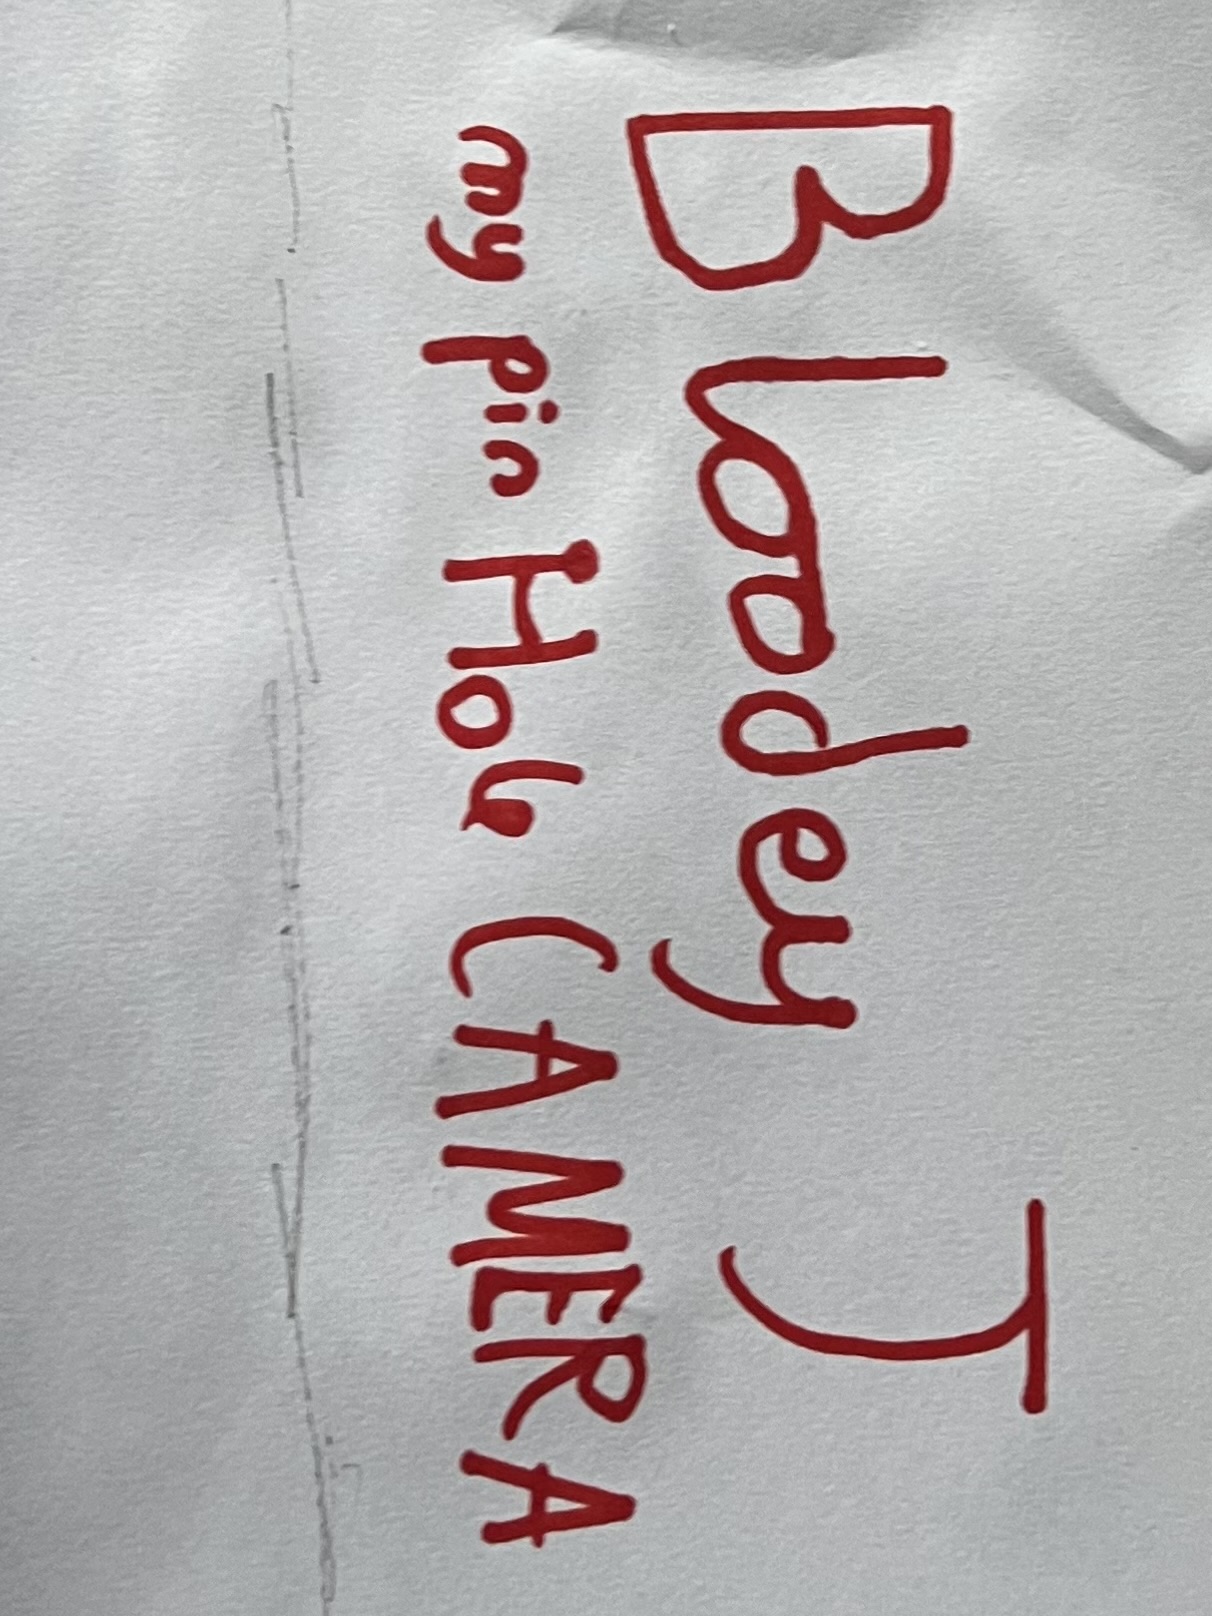 Bloodey J
my pin Hole CAMERA